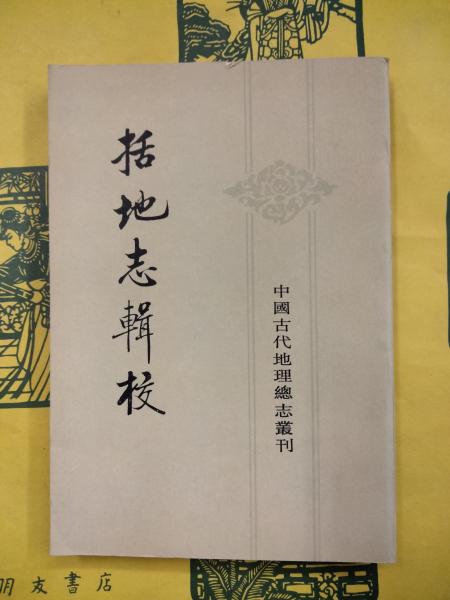 括地志輯校
中國古代地理總志叢刊
朋友書店